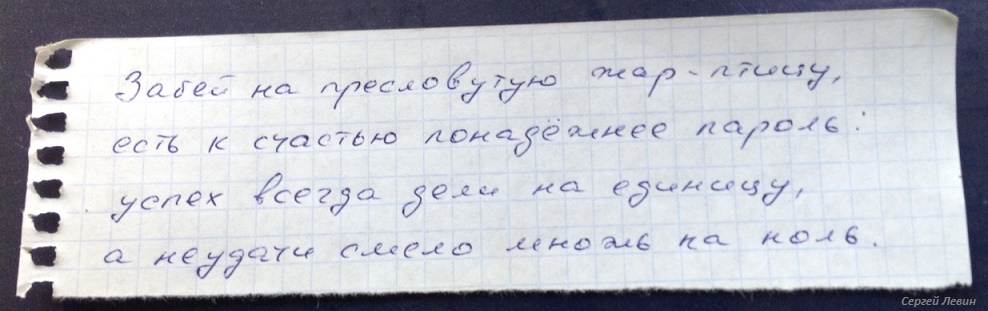 Забей на пресловутую жар-птицу,
есть к счастью понадёжнее пароль:
успех всегда дели на единицу,
а неудачи смело множь на ноль.
Сергей Левин